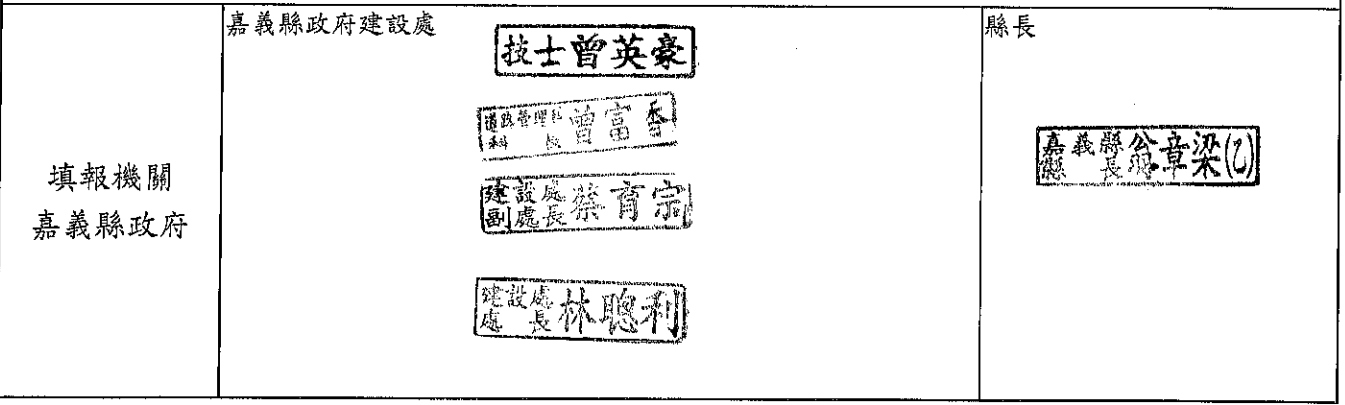 填報機關
嘉義縣政府
嘉義縣政府建設處
技士曾英豪
道路管理科
科長曾富香
建設處
副處長蔡育宗
建設處
處長林聰利
縣長
嘉義縣
縣長翁章梁(乙)